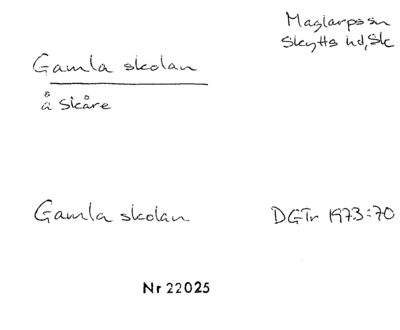 Maglarps sn
Skytts hd, Sk
Gamla skolan
å Skåre
Gamla skolan
DGTr 1973:70
Nr 22025